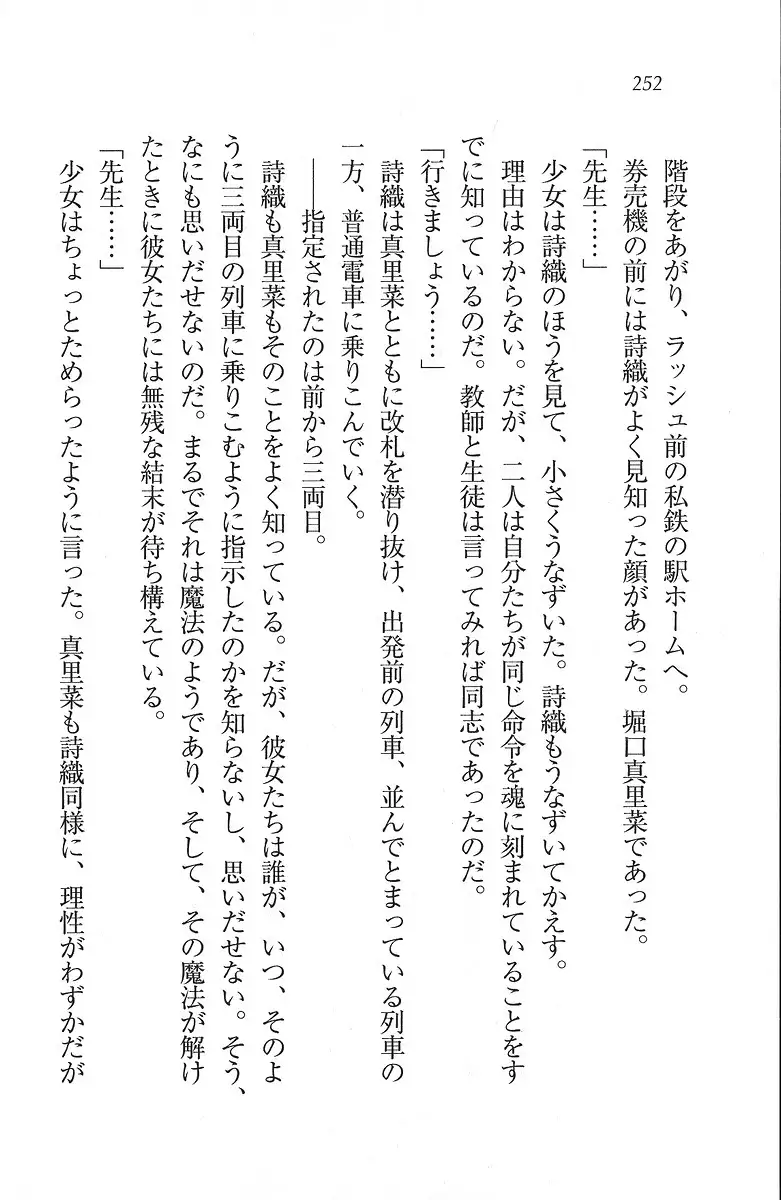 252
階段をあがり、ラッシュ前の私鉄の駅ホームへ。
券売機の前には詩織がよく見知った顔があった。堀口真里菜であった。
「先生……」
少女は詩織のほうを見て、小さくうなずいた。詩織もうなずいてかえす。
理由はわからない。だが、二人は自分たちが同じ命令を魂に刻まれていることをす
でに知っているのだ。教師と生徒は言ってみれば同志であったのだ。
「行きましょう……」
詩織は真里菜とともに改札を潜り抜け、出発前の列車、並んでとまっている列車の
一方、普通電車に乗りこんでいく。
――指定されたのは前から三両目。
詩織も真里菜もそのことをよく知っている。だが、彼女たちは誰が、いつ、そのよ
うに三両目の列車に乗りこむように指示したのかを知らないし、思いだせない。そう、
なにも思いだせないのだ。まるでそれは魔法のようであり、そして、その魔法が解け
たときに彼女たちには無残な結末が待ち構えている。
「先生……」
少女はちょっとためらったように言った。真里菜も詩織同様に、理性がわずかだが